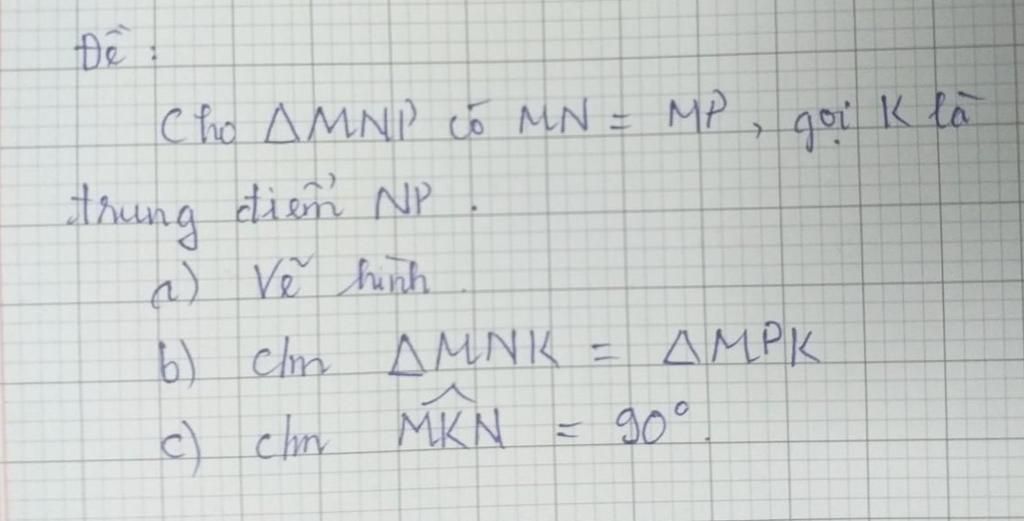 Đề :
Cho ΔMNP có MN = MP, gọi K là
trung điểm NP.
a) Vẽ hình.
b) c/m ΔMNK = ΔMPK
c) c/m M̂K̂N̂ = 90°.